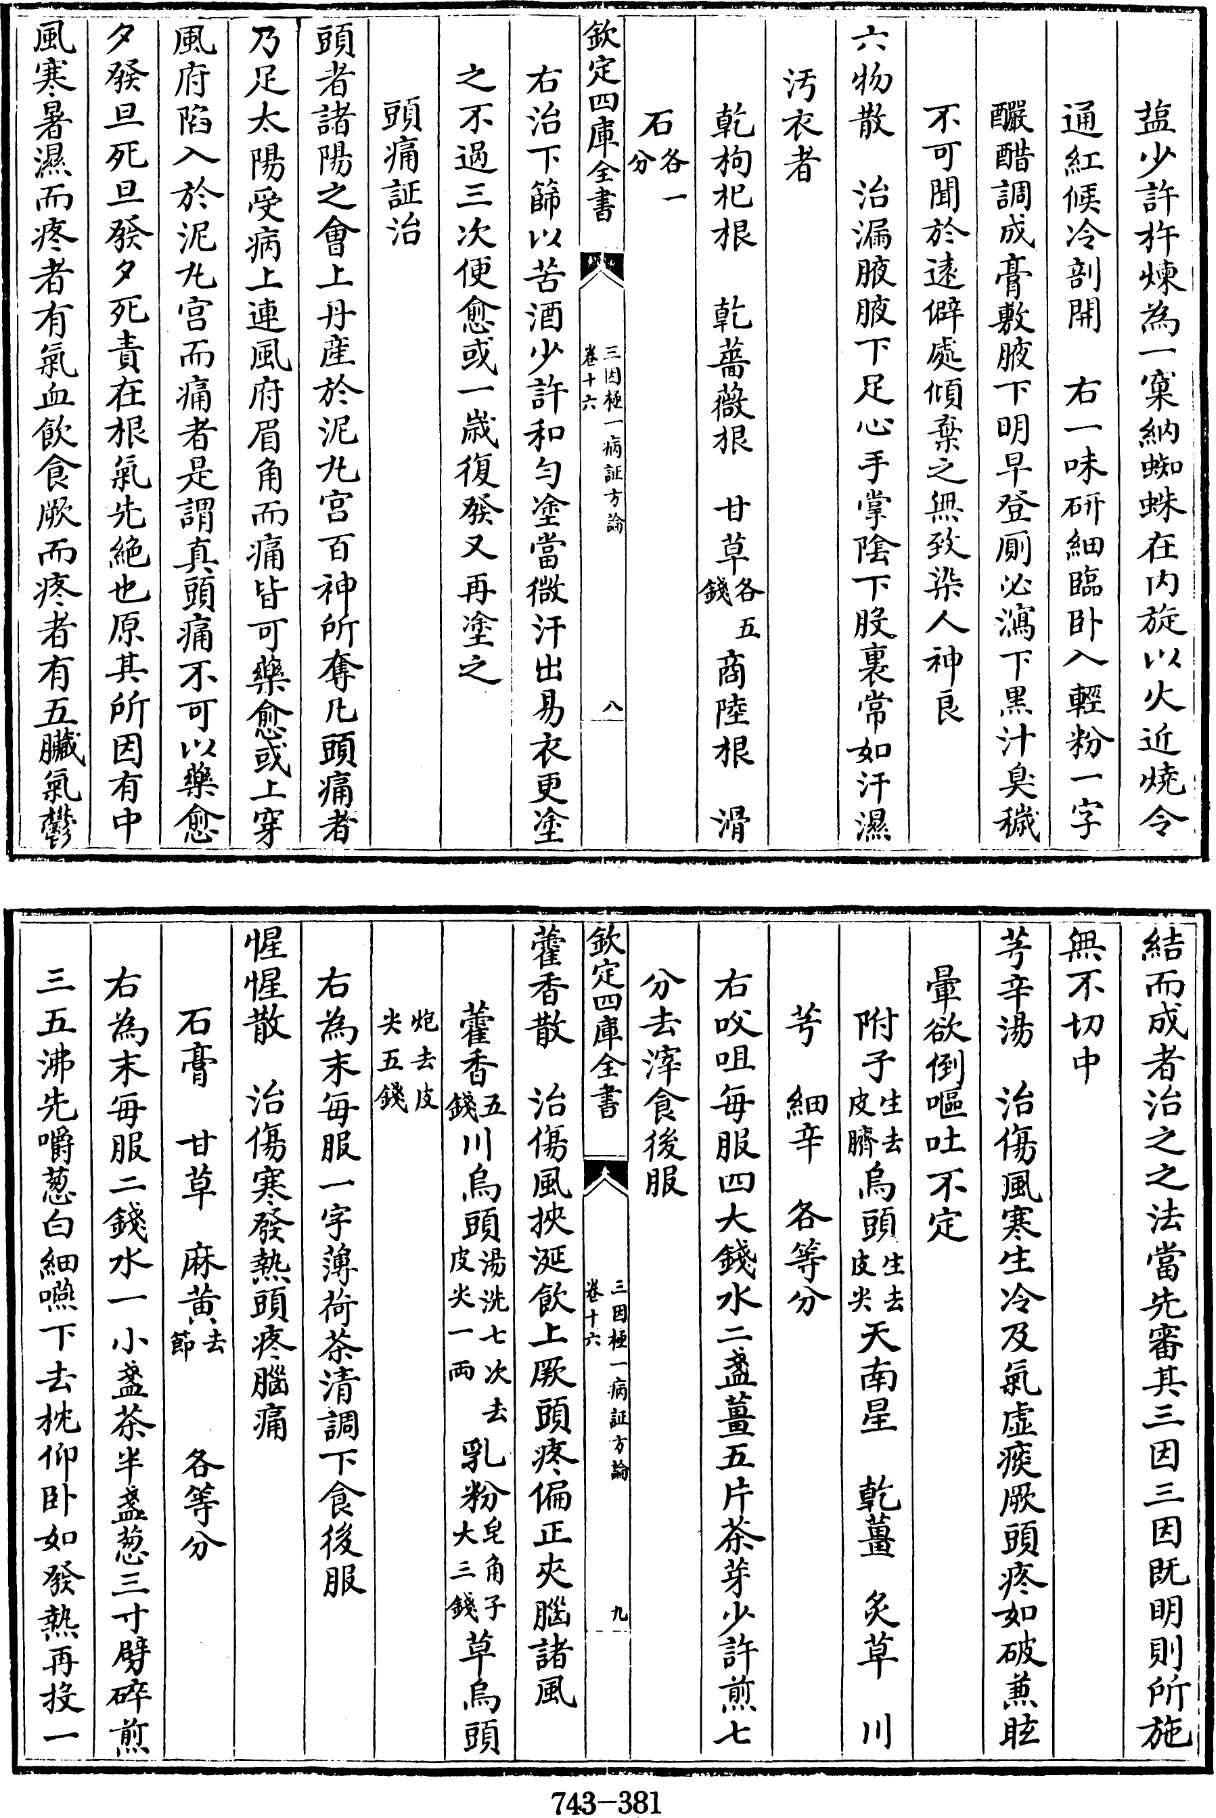 塩少許杵煉為一窠納蜘蛛在内旋以火近燒令
通紅候冷剖開　右一味研細臨卧入輕粉一字
釅醋調成膏敷腋下明早登厠必瀉下黒汁臭穢
不可聞於遠僻處傾棄之無致染人神良
六物散　治漏腋腋下足心手掌陰下股裏常如汗濕
汚衣者
乾枸杞根　乾薔薇根　甘草各五錢　商陸根　滑
石各一分
欽定四庫全書　三因極一病証方論　卷十六　八
右治下篩以苦酒少許和勻塗當微汗出易衣更塗
之不過三次便愈或一歲復發又再塗之
頭痛証治
頭者諸陽之會上丹産於泥丸宮百神所奪凡頭痛者
乃足太陽受病上連風府眉角而痛皆可藥愈或上穿
風府陷入於泥丸宮而痛者是謂真頭痛不可以藥愈
夕發旦死旦發夕死責在根氣先絶也原其所因有中
風寒暑濕而疼者有氣血飲食厥而疼者有五臟氣鬱
結而成者治之之法當先審其三因三因既明則所施
無不切中
芎辛湯　治傷風寒生冷及氣虛痰厥頭疼如破兼眩
暈欲倒嘔吐不定
附子生去皮臍　烏頭生去皮尖　天南星　乾薑　炙草　川
芎　細辛　各等分
右㕮咀每服四大錢水二盞薑五片茶芽少許煎七
分去滓食後服
欽定四庫全書　三因極一病証方論　卷十六　九
藿香散　治傷風挾涎飲上厥頭疼偏正夾腦諸風
藿香五錢　川烏頭湯洗七次去皮尖一両　乳粉皂角子大三錢　草烏頭
炮去皮尖五錢
右為末每服一字薄荷茶清調下食後服
惺惺散　治傷寒發熱頭疼腦痛
石膏　甘草　麻黄去節　各等分
右為末每服二錢水一小盞茶半盞葱三寸劈碎煎
三五沸先嚼葱白細嚥下去枕仰卧如發熱再投一
743-381